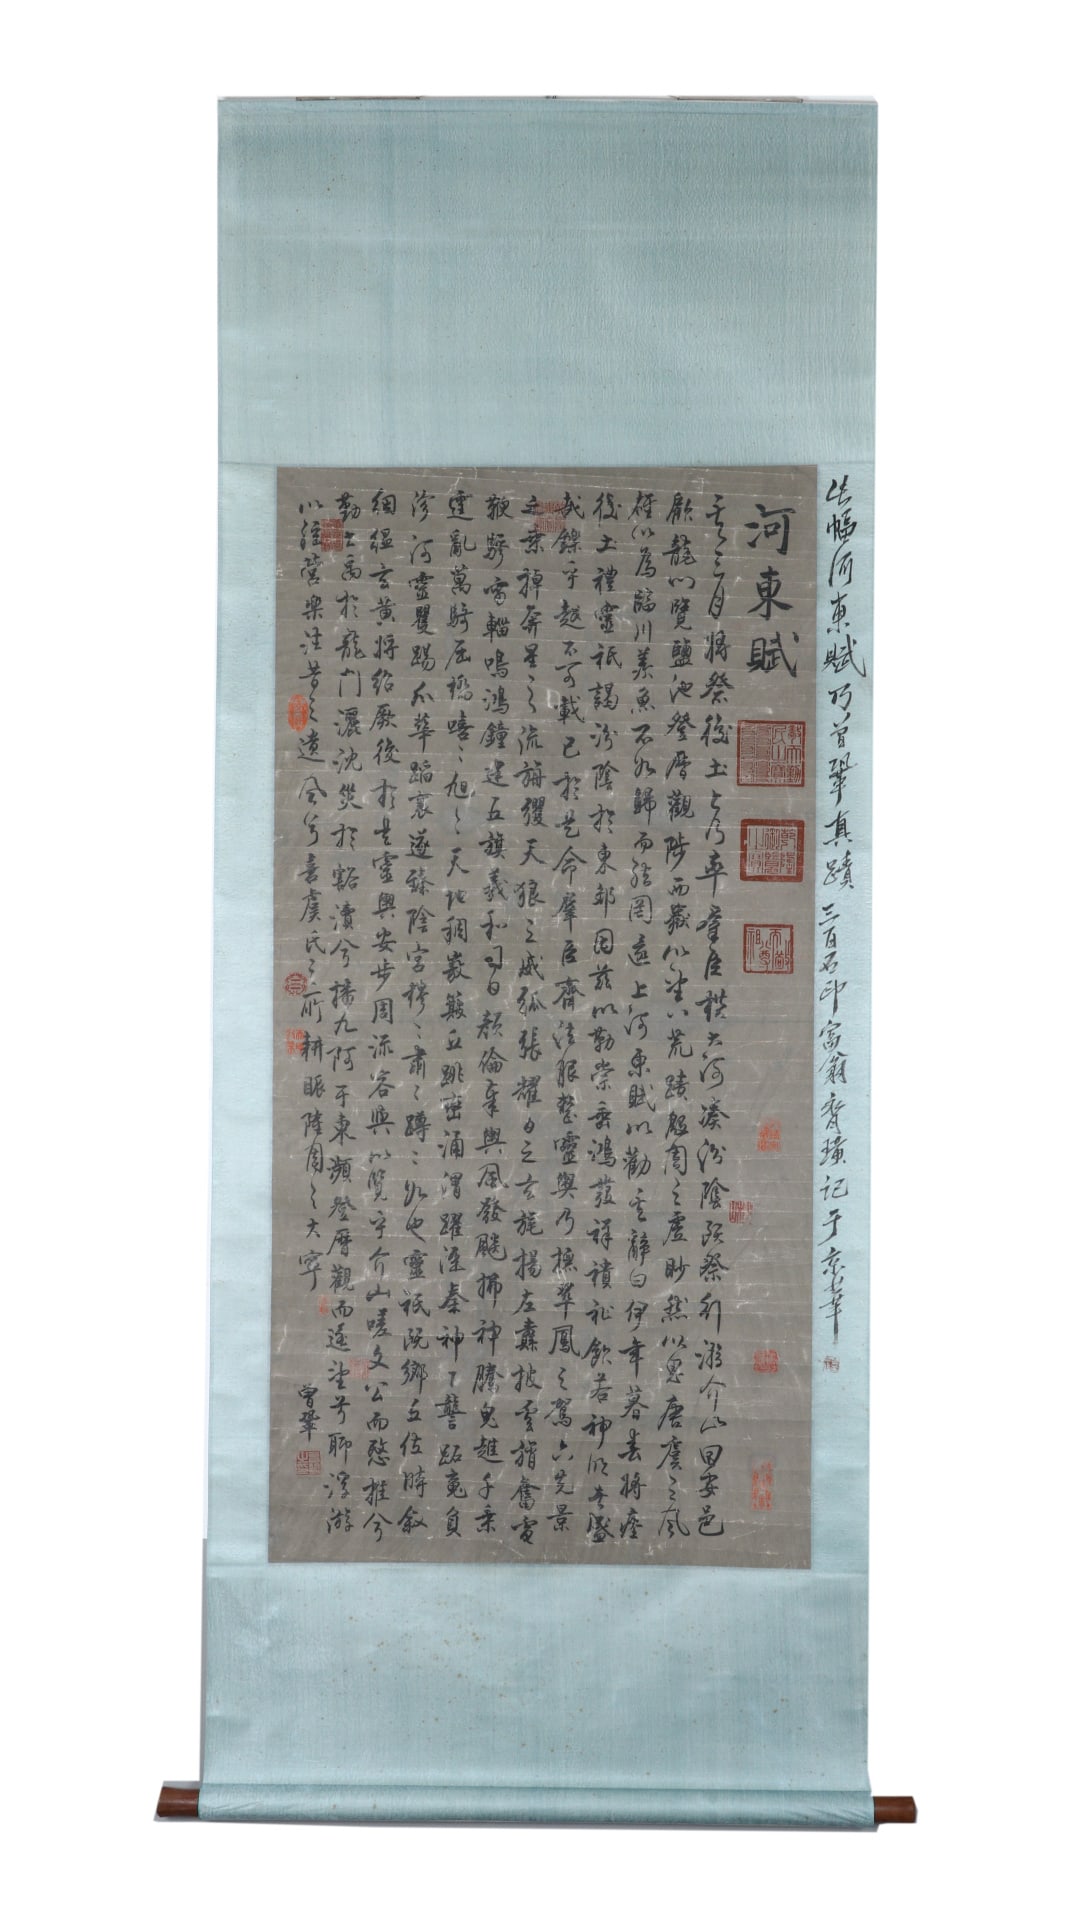 此幅河東賦乃曾鞏真蹟三百石印富翁齊璜記于京華
河東賦
其三月將祭後土上乃率羣臣橫大河湊汾陰既祭行游介山回安邑
顧龍門覽鹽池登歷觀陟西嶽以望八荒蹟殷周之虛眇然以思唐虞之風
雄以為臨川羨魚不如歸而結罔還上河東賦以勸其辭曰伊年暮春將瘞
後土禮靈祇謁汾陰於東郊因茲以勒崇垂鴻發祥隤祉欽若神明者盛
哉鑠乎越不可載已於是命羣臣齊法服整靈輿乃撫翠鳳之駕六先景
之乘掉奔星之流旃彏天狼之威弧張耀日之玄旄揚左纛被雲梢奮電
鞭驂雷輜鳴鴻鐘建五旗羲和司日顏倫奉輿風發飆拂神騰鬼趡千乘
霆亂萬騎屈橋嘻〻旭〻天地稠㟼簸丘跳巒涌渭躍涇秦神下讋跖魂負
沴河靈矍踢爪華蹈襄遂臻陰宮穆〻肅〻蹲〻如也靈祇既鄉五位時敘
絪縕玄黃將紹厥後於是靈輿安步周流容與以覽乎介山嗟文公而愍推兮
勤大禹於龍門灑沈災於豁瀆兮播九河于東瀕登歷觀而遙望兮聊浮游
以經營樂往昔之遺風兮喜虞氏之所耕眽隆周之大寧
曾鞏